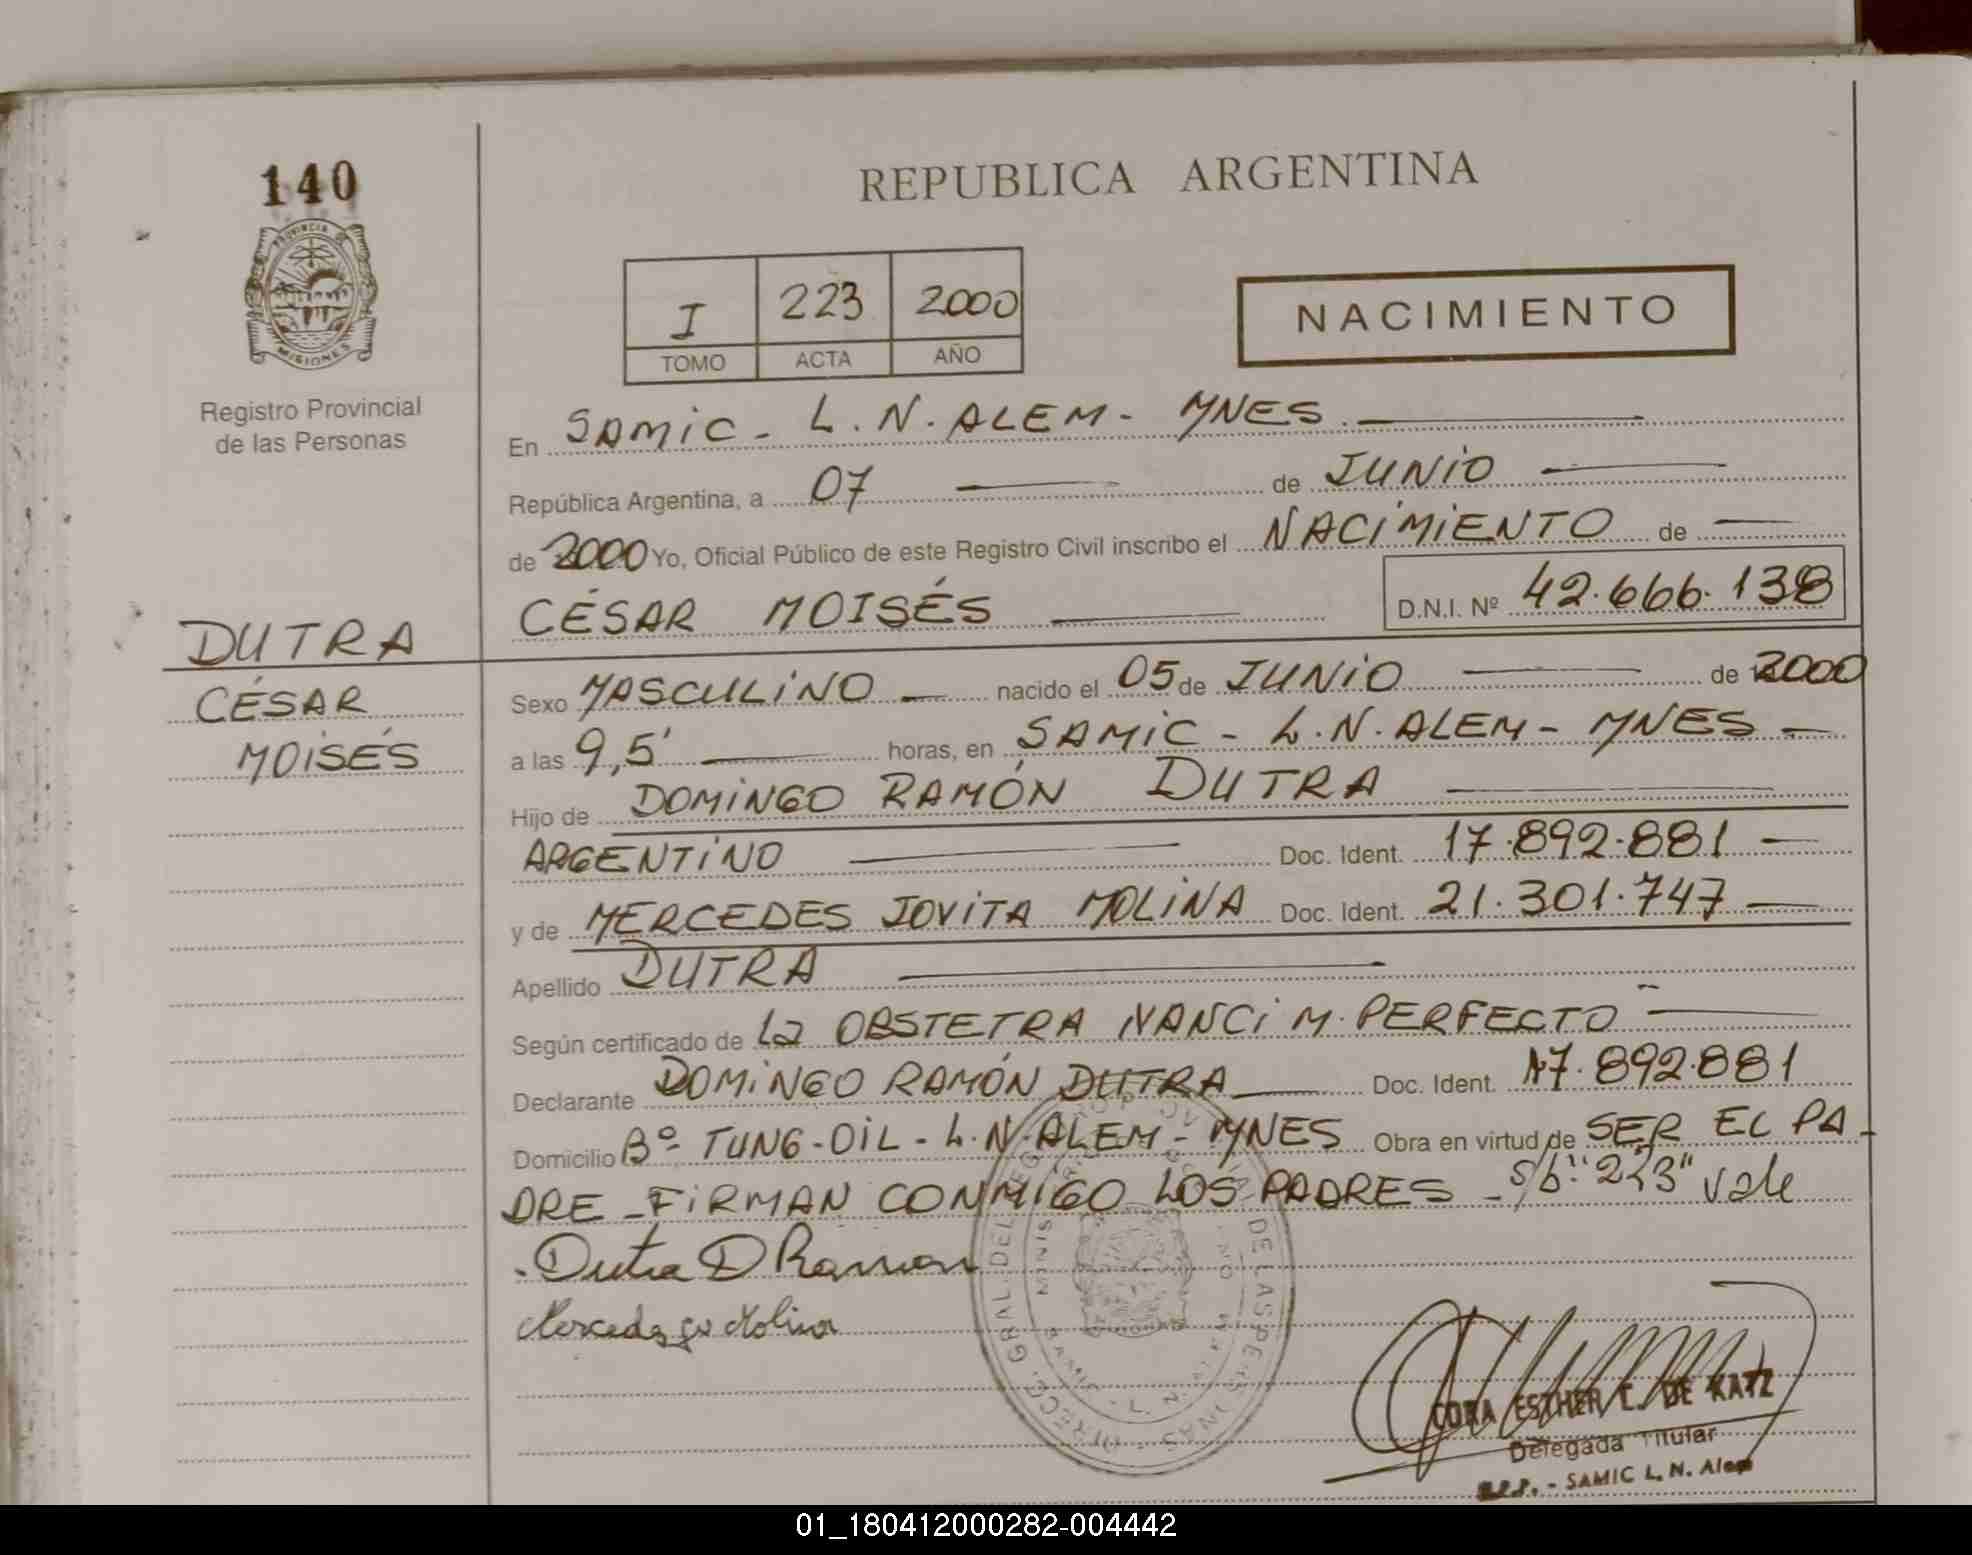 140
PROVINCIA DE
MISIONES
Registro Provincial
de las Personas
DUTRA
CÉSAR
MOISÉS
REPUBLICA ARGENTINA
I 223 2000
TOMO ACTA AÑO
NACIMIENTO
En SAMIC - L. N. ALEM - MNES.
República Argentina, a 07 de JUNIO
de 2000 Yo, Oficial Público de este Registro Civil inscribo el NACIMIENTO de
CÉSAR MOISÉS D.N.I. Nº 42.666.138
Sexo MASCULINO nacido el 05 de JUNIO de 2000
a las 9,5' horas, en SAMIC - L. N. ALEM - MNES
Hijo de DOMINGO RAMÓN DUTRA
ARGENTINO Doc. Ident. 17.892.881
y de MERCEDES JOVITA MOLINA Doc. Ident. 21.301.747
Apellido DUTRA
Según certificado de La OBSTETRA NANCI M. PERFECTO
Declarante DOMINGO RAMÓN DUTRA Doc. Ident. 17.892.881
Domicilio Bº TUNG-OIL - L. N. ALEM - MNES Obra en virtud de SER EL PA-
DRE - FIRMAN CONMIGO LOS PADRES - s/b: "223" vale
Dutra D Ramon
Mercedes Molina
CORA ESTHER C. DE KATZ
Delegada Titular
R.P.P. - SAMIC L. N. Alem
01_180412000282-004442